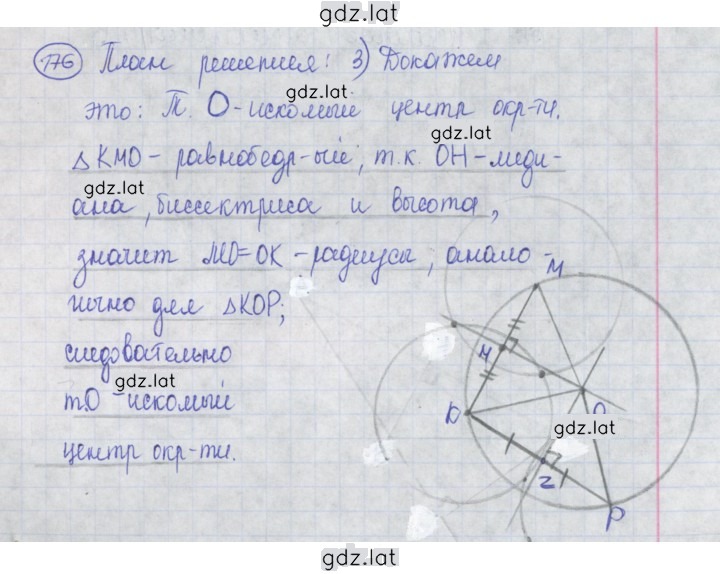 gdz.lat
176 План решения: 3) Докажем
gdz.lat
это: Т. О-искомый центр окр-ти.
gdz.lat
△KMO - равнобедр-ый, т.к. OH-меди-
gdz.lat
ана, биссектриса и высота,
значит MO=OK - радиусы, анало-
гично для △KOP;
следовательно
gdz.lat
т.О - искомый
центр окр-ти.
M
H
O
K
gdz.lat
Z
P
gdz.lat